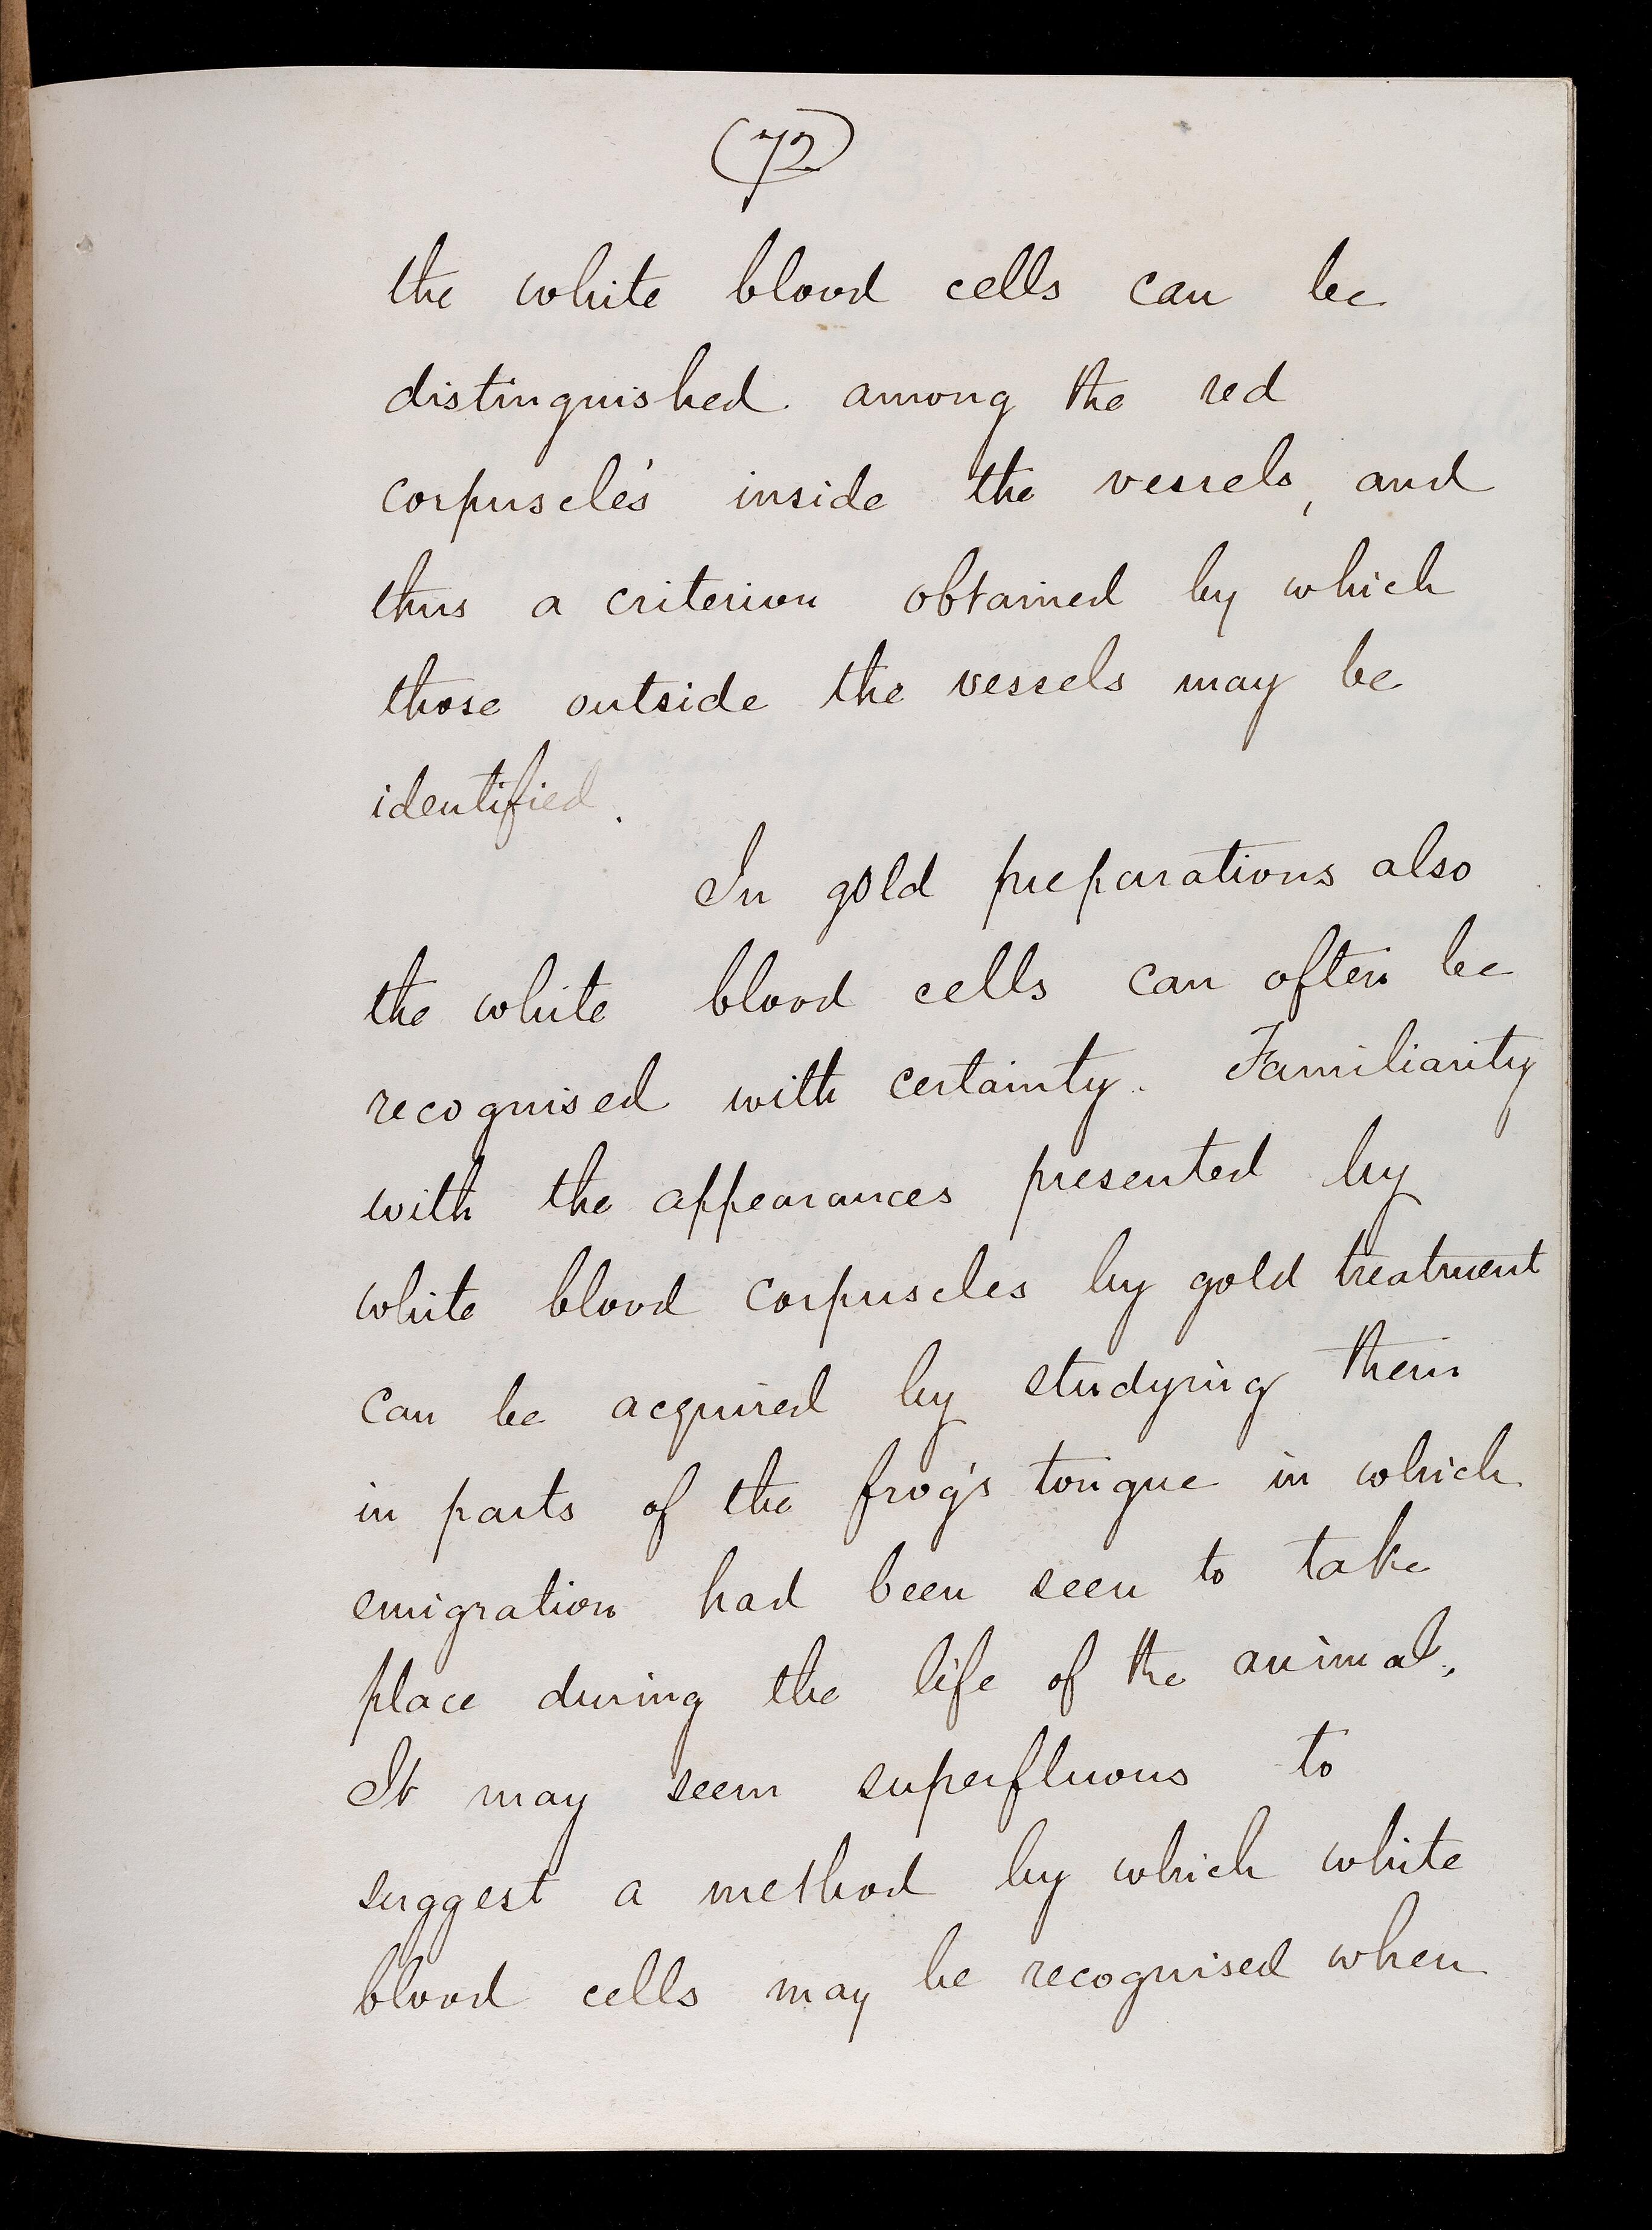 (72)
the white blood cells can be
distinguished among the red
corpuscles inside the vessels, and
thus a criterion obtained by which
those outside the vessels may be
identified.
In gold preparations also
the white blood cells can often be
recognised with certainty. Familiarity
with the appearances presented by
white blood corpuscles by gold treatment
can be acquired by studying them
in parts of the frog's tongue in which
emigration had been seen to take
place during the life of the animal.
It may seem superfluous to
suggest a method by which white
blood cells may be recognised when